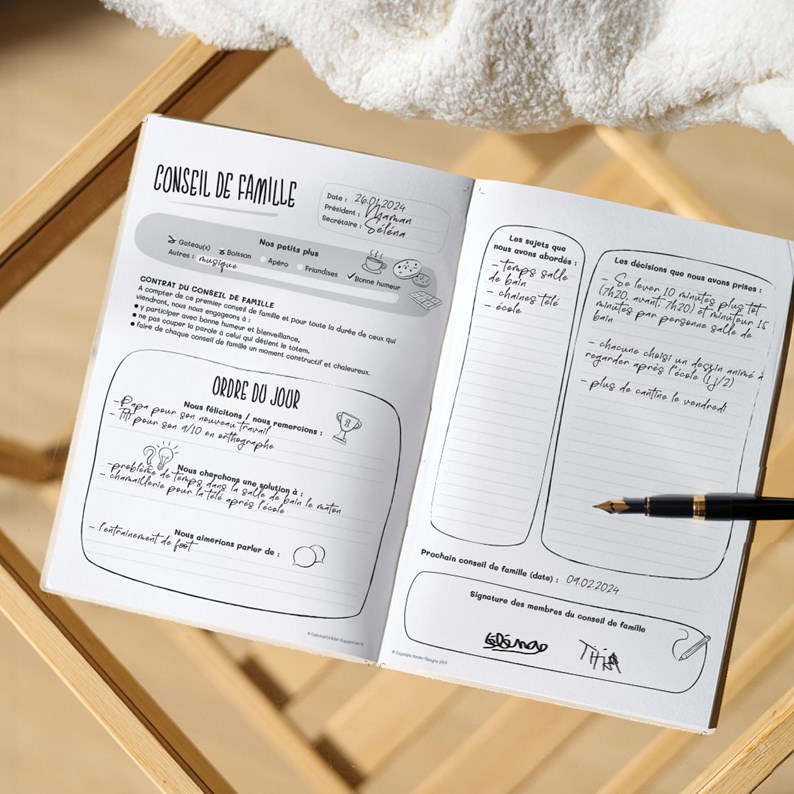 CONSEIL DE FAMILLE
Date : 26.01.2024
Président : Maman
Secrétaire : Séléna
Nos petits plus
Gateau(x) Boisson Apéro Friandises Bonne humeur
Autres : musique
CONTRAT DU CONSEIL DE FAMILLE
A compter de ce premier conseil de famille et pour toute la durée de ceux qui
viendront, nous nous engageons à :
• y participer avec bonne humeur et bienveillance,
• ne pas couper la parole à celui qui détient le totem,
• faire de chaque conseil de famille un moment constructif et chaleureux.
ORDRE DU JOUR
Nous félicitons / nous remercions :
- Papa pour son nouveau travail
- Titi pour son 9/10 en orthographe
Nous cherchons une solution à :
- problème de temps dans la salle de bain le matin
chamaillerie pour la télé après l'école
Nous aimerions parler de :
- l'entrainement de foot
Les sujets que
nous avons abordés :
- Temps salle
de bain
- chaines télé
- école
Les décisions que nous avons prises :
- Se lever 10 minutes plus tôt
(7h20, avant 7h20) et minuteur 15
minutes par personne salle de
bain
- chacune choisi un dessin animé à
regarder après l'école (1 j/2)
- plus de cantine le vendredi
Prochain conseil de famille (date) : 09.02.2024
Signature des membres du conseil de famille